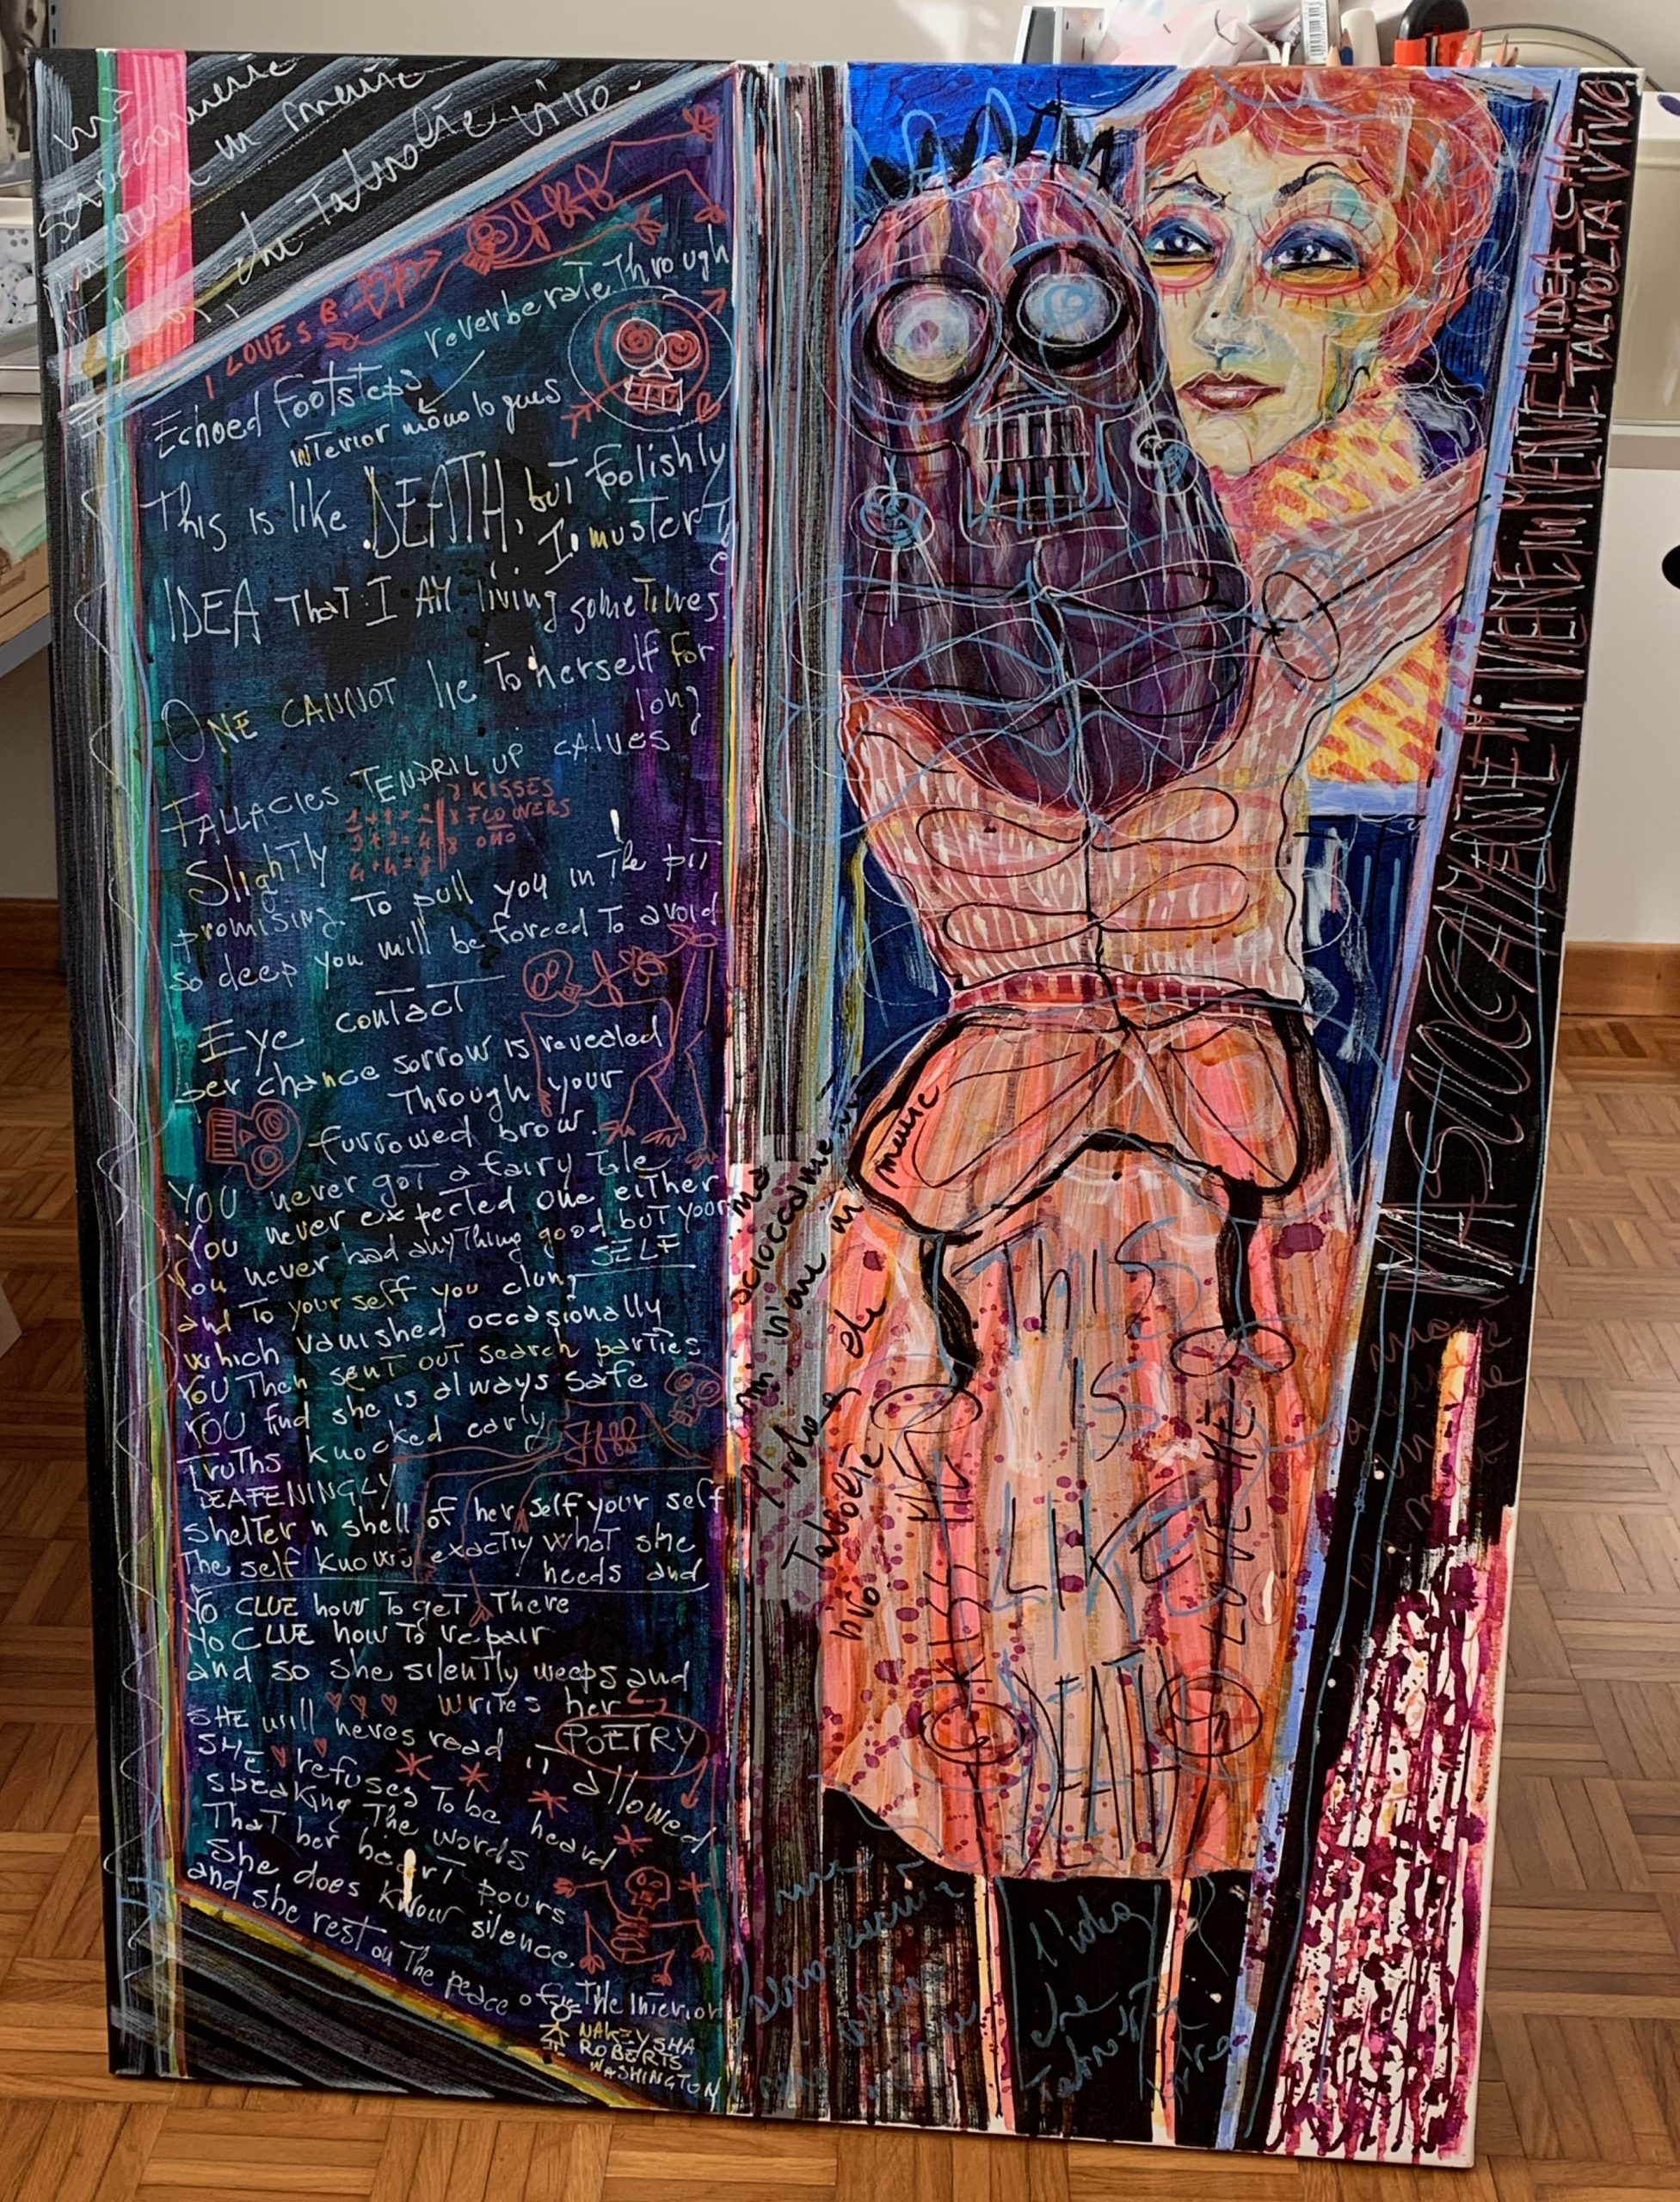 ma
scioccamente
mi viene in mente
che talvolta vivo
I LOVE S B.
Echoed Footsteps reverberate Through
interior monologues
This is like DEATH, but foolishly
I muster
IDEA That I AM living sometimes
ONE CANNOT lie To herself for
long
FALLACIES TENDRIL UP calves
8 KISSES
8 FLOWERS
4+4=8
Slightly
promising To pull you in The pit
so deep you will be forced To avoid
Eye contact
per chance sorrow is revealed
Through your
furrowed brow.
YOU never got a fairy Tale
You never expected one either
You never had anything good but your
SELF
and To your self you clung
which vanished occasionally
YOU Then sent out search parties
YOU find she is always safe
Truths knocked early
DEAFENINGLY
shelter n shell of her self your self
The self knows exactly what she
needs and
NO CLUE how To get There
NO CLUE how To repair
and so she silently weeps and
writes her
POETRY
SHE will never read it allowed
SHE refuses To be heard
speaking The words
That her heart pours
She does know silence
and she rest on The peace of The Interior
NAKEYSHA
ROBERTS
WASHINGTON
ma
scioccamente
mi viene in mente
l'idea che
talvolta
vivo
THIS
IS
LIKE
DEATH
KISS ME
LOVE ME
MA SCIOCCAMENTE MI VIENE IN MENTE L'IDEA CHE
TALVOLTA VIVO
ma
l'idea
che